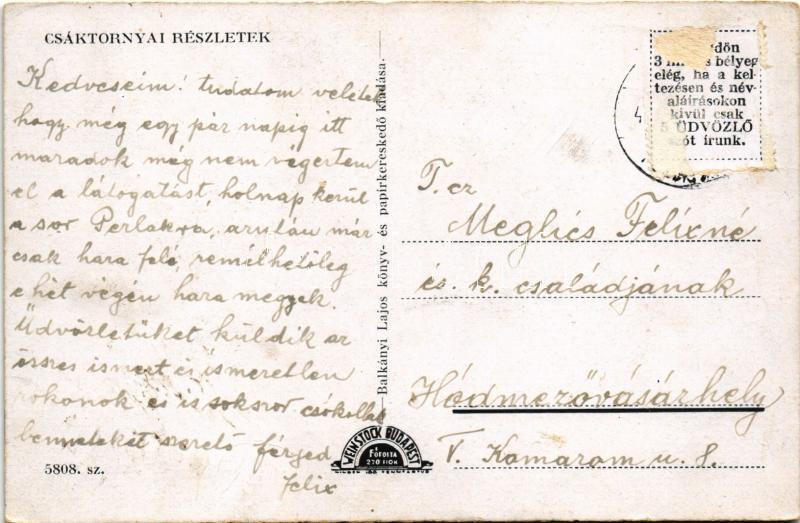 CSÁKTORNYAI RÉSZLETEK
Kedveseim! tudatom veletek
hogy még egy pár napig itt
maradok még nem végeztem
el a látogatást, holnap kerül
a sor Perlakra, azután már
csak haza felé, remélhetőleg
e hét végén haza megyek.
Üdvözletüket küldik az
összes ismert és ismeretlen
rokonok és is sokszor csókollak
benneteket szerető férjed
Felix
5808. sz.
Balkányi Lajos könyv- és papirkereskedő kiadása.
WEINSTOCK BUDAPEST
FŐFOTTA
270 HOK
dön
3 bélyeg
elég, ha a kel-
tezésen és név-
aláírásokon
kívül csak
5 ÜDVÖZLŐ
szót írunk.
4
T. cz
Meglics Felixné
és k. családjának
Hódmezővásárhely
V. Komárom u. 8.